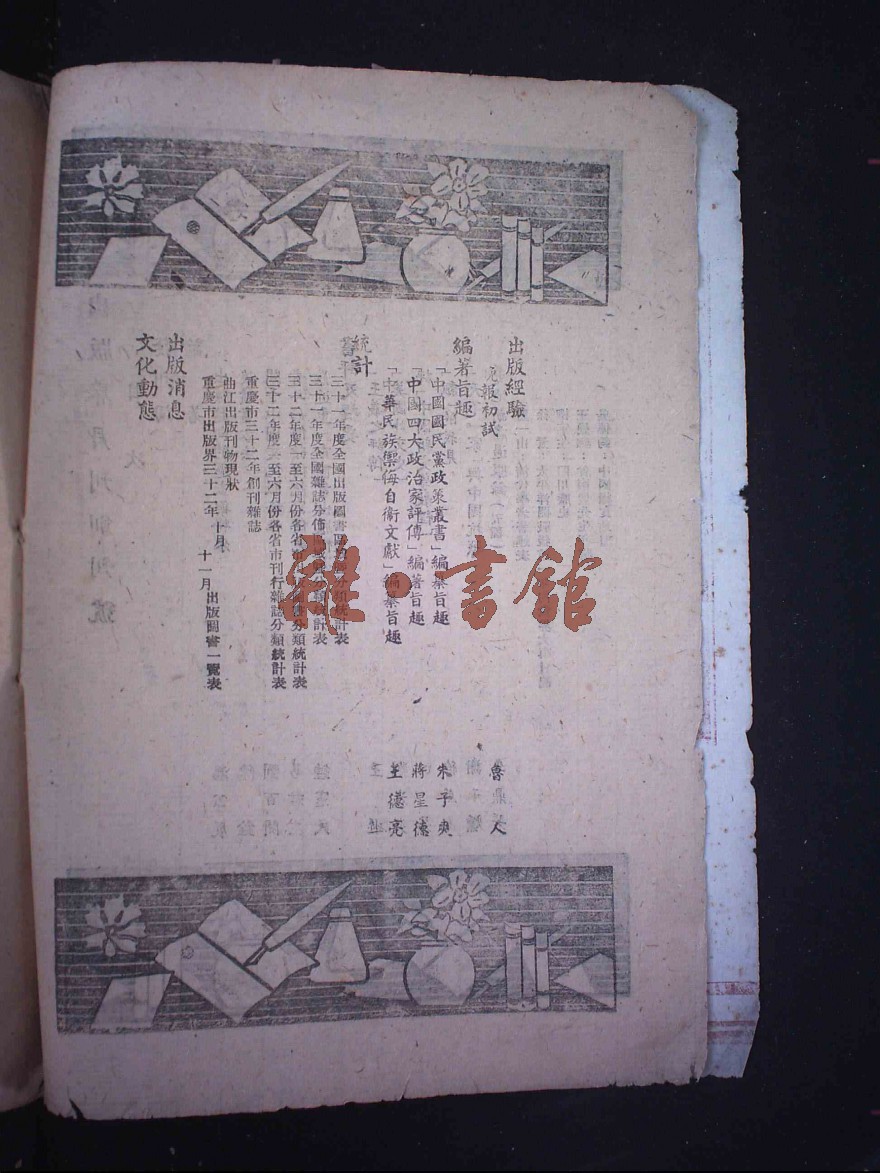 出版經驗
報初試
魯鼎人
編著旨趣
「中國國民黨政策叢書」編纂旨趣
朱子爽
「中國四大政治家評傳」編著旨趣
蔣星德
「中華民族禦侮自衛文獻」編纂旨趣
王德亮
統計
三十一年度全國出版圖書 分類統計表
三十一年度全國雜誌分佈 統計表
三十二年度一至六月份各省市 分類統計表
三十二年度一至六月份各省市刊行雜誌分類統計表
重慶市三十二年創刊雜誌
曲江出版刊物現狀
重慶市出版界三十二年十月、十一月出版圖書一覽表
出版消息
文化動態
雜·書館